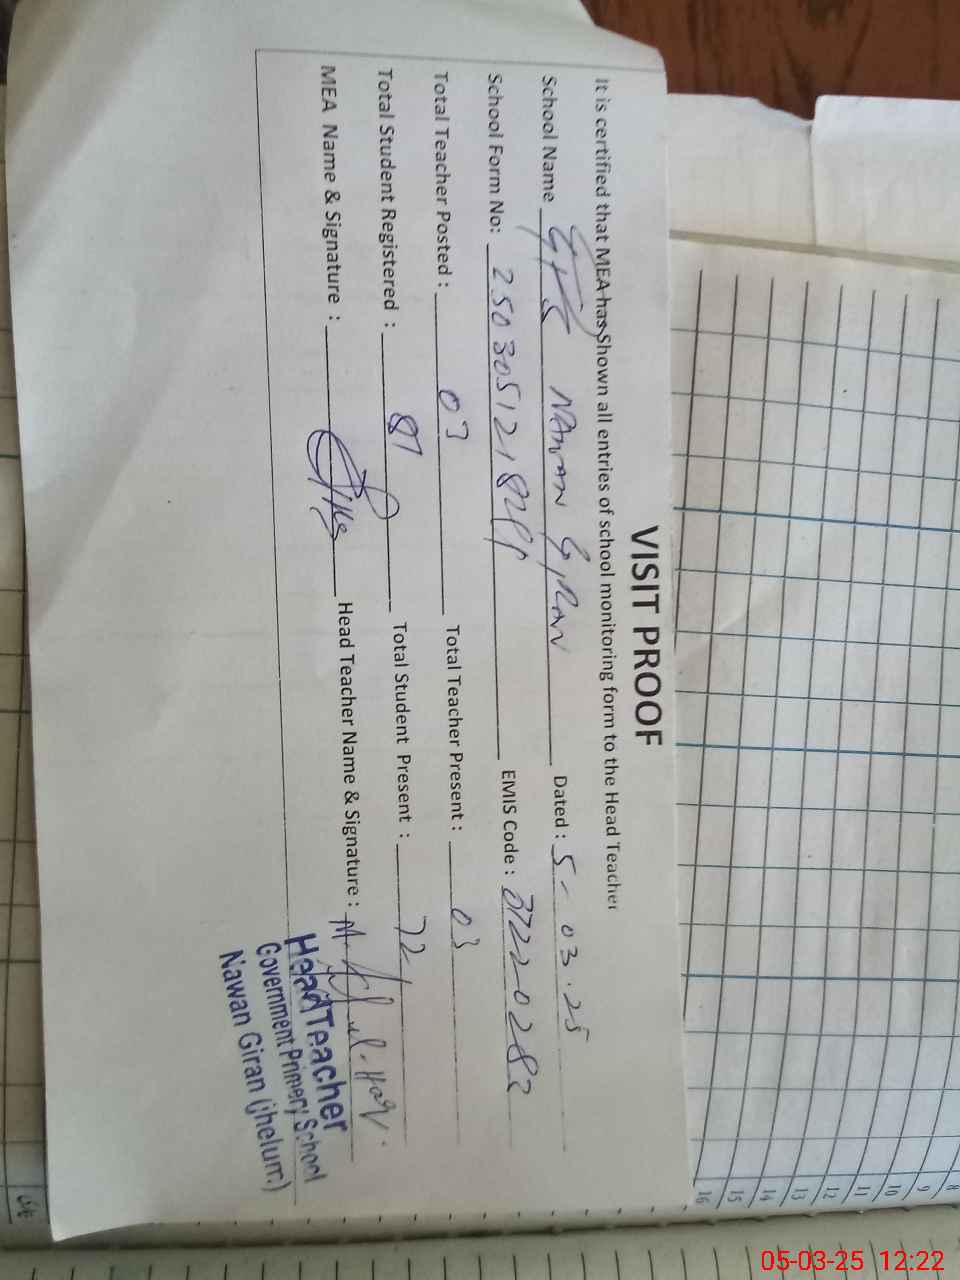 VISIT PROOF
It is certified that MEA has shown all entries of school monitoring form to the Head Teacher
School Name GPS NAWAN GIRAN Dated : 5-03.25
School Form No: EMIS Code : 37220282
Total Teacher Posted : 03 Total Teacher Present : 03
Total Student Registered : 87 Total Student Present : 72
MEA Name & Signature : Head Teacher Name & Signature :
Head Teacher
Government Primery School
Nawan Giran (Jhelum)
8
9
10
11
12
13
14
15
16
05-03-25 12:22